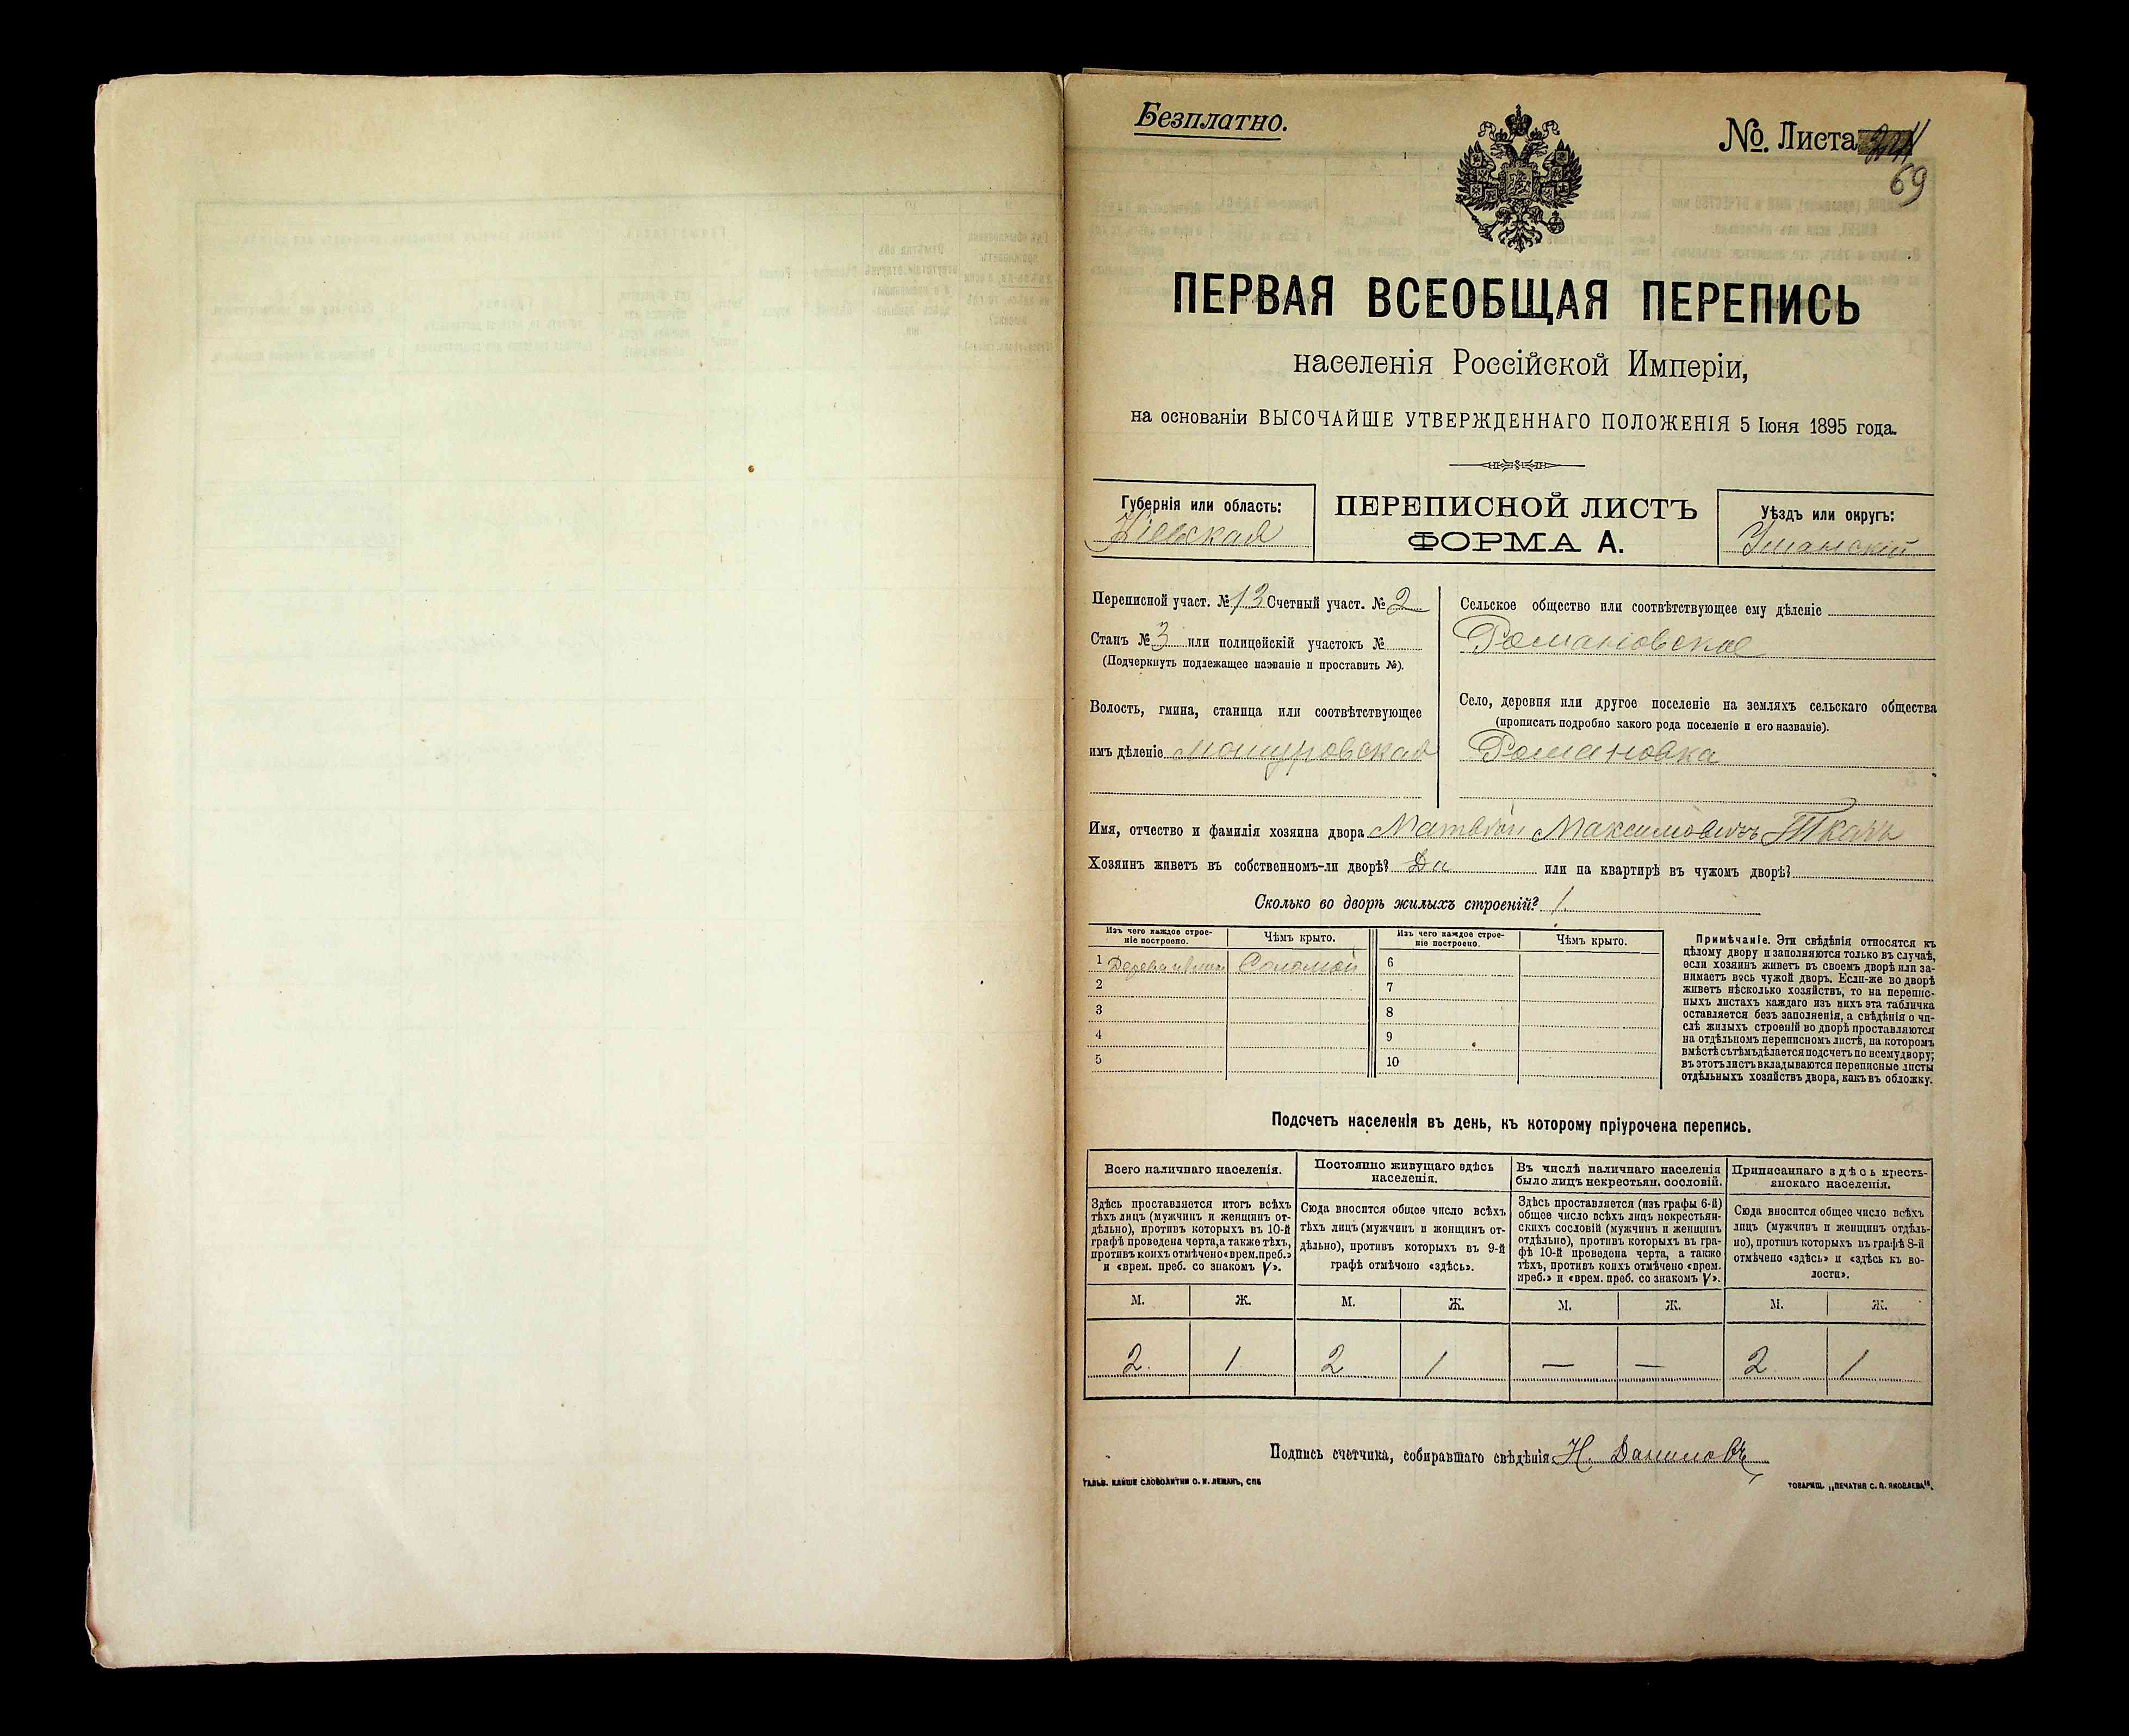 Безплатно.
№. Листа
69
ПЕРВАЯ ВСЕОБЩАЯ ПЕРЕПИСЬ
населенія Россійской Имперіи,
на основаніи ВЫСОЧАЙШЕ УТВЕРЖДЕННАГО ПОЛОЖЕНІЯ 5 Іюня 1895 года.
Губернія или область:
Кіевская
ПЕРЕПИСНОЙ ЛИСТЪ
ФОРМА А.
Уѣздъ или округъ:
Уманскій
Переписной участ. № 13 Счетный участ. № 2
Станъ № 3 или полицейскій участокъ №
(Подчеркнуть подлежащее названіе и проставить №).
Волость, гмина, станица или соотвѣтствующее
имъ дѣленіе Мошуровская
Сельское общество или соотвѣтствующее ему дѣленіе
Романовское
Село, деревня или другое поселеніе на земляхъ сельскаго общества
(прописать подробно какого рода поселеніе и его названіе).
Романовка
Имя, отчество и фамилія хозяина двора Матвѣй Максимовичъ Ткачъ
Хозяинъ живетъ въ собственномъ-ли дворѣ? Да или на квартирѣ въ чужомъ дворѣ?
Сколько во дворѣ жилыхъ строеній? 1
Изъ чего каждое строе-
ніе построено.
Чѣмъ крыто.
Изъ чего каждое строе-
ніе построено.
Чѣмъ крыто.
1 Дерева и глины Соломой 6
2 7
3 8
4 9
5 10
Примѣчаніе. Эти свѣдѣнія относятся къ
цѣлому двору и заполняются только въ случаѣ,
если хозяинъ живетъ въ своемъ дворѣ или за-
нимаетъ весь чужой дворъ. Если-же во дворѣ
живетъ нѣсколько хозяйствъ, то на перепис-
ныхъ листахъ каждаго изъ нихъ эта табличка
оставляется безъ заполненія, а свѣдѣнія о чи-
слѣ жилыхъ строеній во дворѣ проставляются
на отдѣльномъ переписномъ листѣ, на которомъ
вмѣстѣ съ тѣмъ дѣлается подсчетъ по всему двору;
въ этотъ листъ вкладываются переписные листы
отдѣльныхъ хозяйствъ двора, какъ въ обложку.
Подсчетъ населенія въ день, къ которому пріурочена перепись.
Всего наличнаго населенія.
Здѣсь проставляется итогъ всѣхъ
тѣхъ лицъ (мужчинъ и женщинъ от-
дѣльно), противъ которыхъ въ 10-й
графѣ проведена черта, а также тѣхъ,
противъ коихъ отмѣчено «врем. преб.»
и «врем. преб. со знакомъ V».
Постоянно живущаго здѣсь
населенія.
Сюда вносится общее число всѣхъ
тѣхъ лицъ (мужчинъ и женщинъ от-
дѣльно), противъ которыхъ въ 9-й
графѣ отмѣчено «здѣсь».
Въ числѣ наличнаго населенія
было лицъ некрестьян. сословій.
Здѣсь проставляется (изъ графы 6-й)
общее число всѣхъ лицъ некрестьян-
скихъ сословій (мужчинъ и женщинъ
отдѣльно), противъ которыхъ въ гра-
фѣ 10-й проведена черта, а также
тѣхъ, противъ коихъ отмѣчено «врем.
преб.» и «врем. преб. со знакомъ V».
Приписаннаго здѣсь кресть-
янскаго населенія.
Сюда вносится общее число всѣхъ
лицъ (мужчинъ и женщинъ отдѣль-
но), противъ которыхъ въ графѣ 8-й
отмѣчено «здѣсь» и «здѣсь къ во-
лости».
М. Ж. М. Ж. М. Ж. М. Ж.
2 1 2 1 — — 2 1
Подпись счетчика, собиравшаго свѣдѣнія Н. Даниловъ
ГАЛЬВ. КЛИШЕ СЛОВОЛИТНИ О. И. ЛЕМАНЪ, СПБ
ТОВАРИЩ. „ПЕЧАТНЯ С. П. ЯКОВЛЕВА".